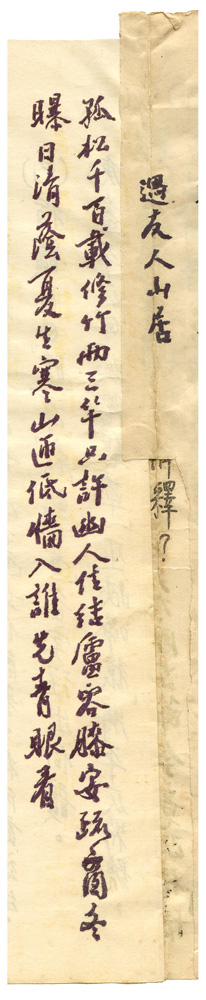 過友人山居
釋?
孤松千百載修竹兩三竿只許幽人住結廬容膝安疏窗冬
曝日清蔭夏生寒山低牆入誰先青眼看